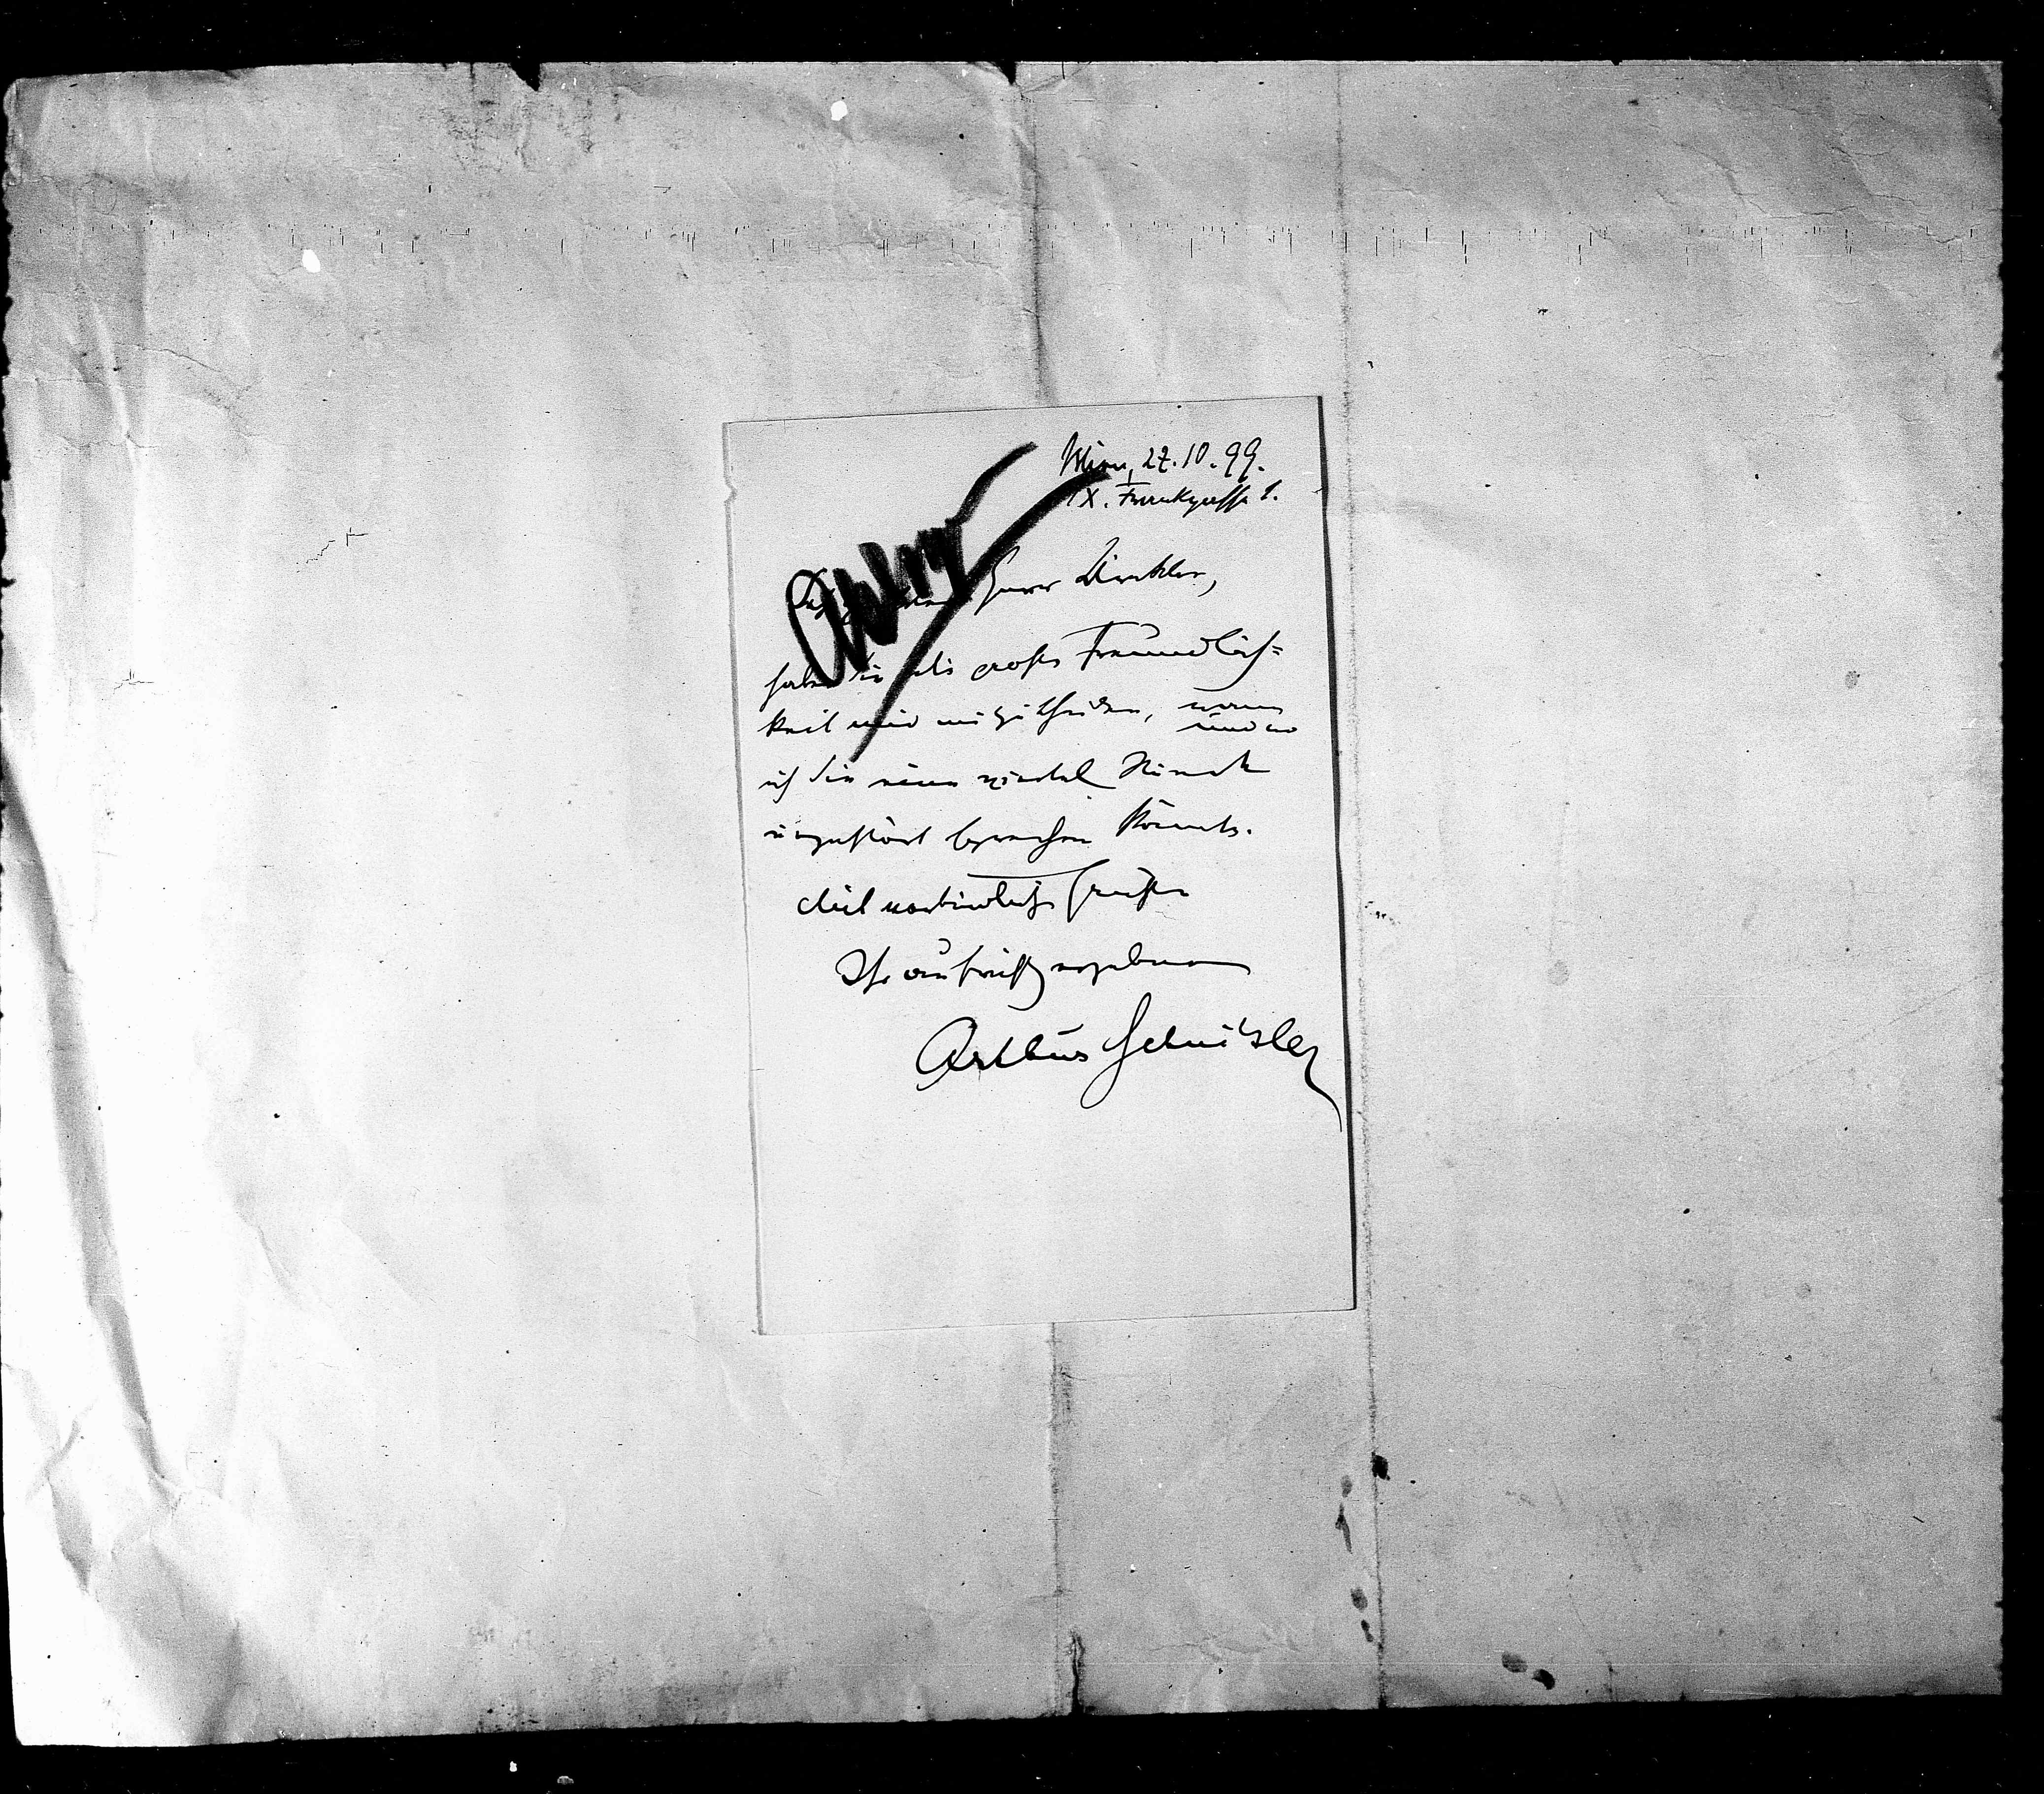 Wien, 27.10.99.
IX. Frankgasse 1.
Herr Direktor,
haben Sie die große Freundlich=
keit mir mitzutheilen, wann
und wo
ich Sie eine viertel Stunde
ungestört sprechen könnte.
Mit verbindlichen Grüßen
Ihr aufrichtig ergebener
Arthur Schnitzler